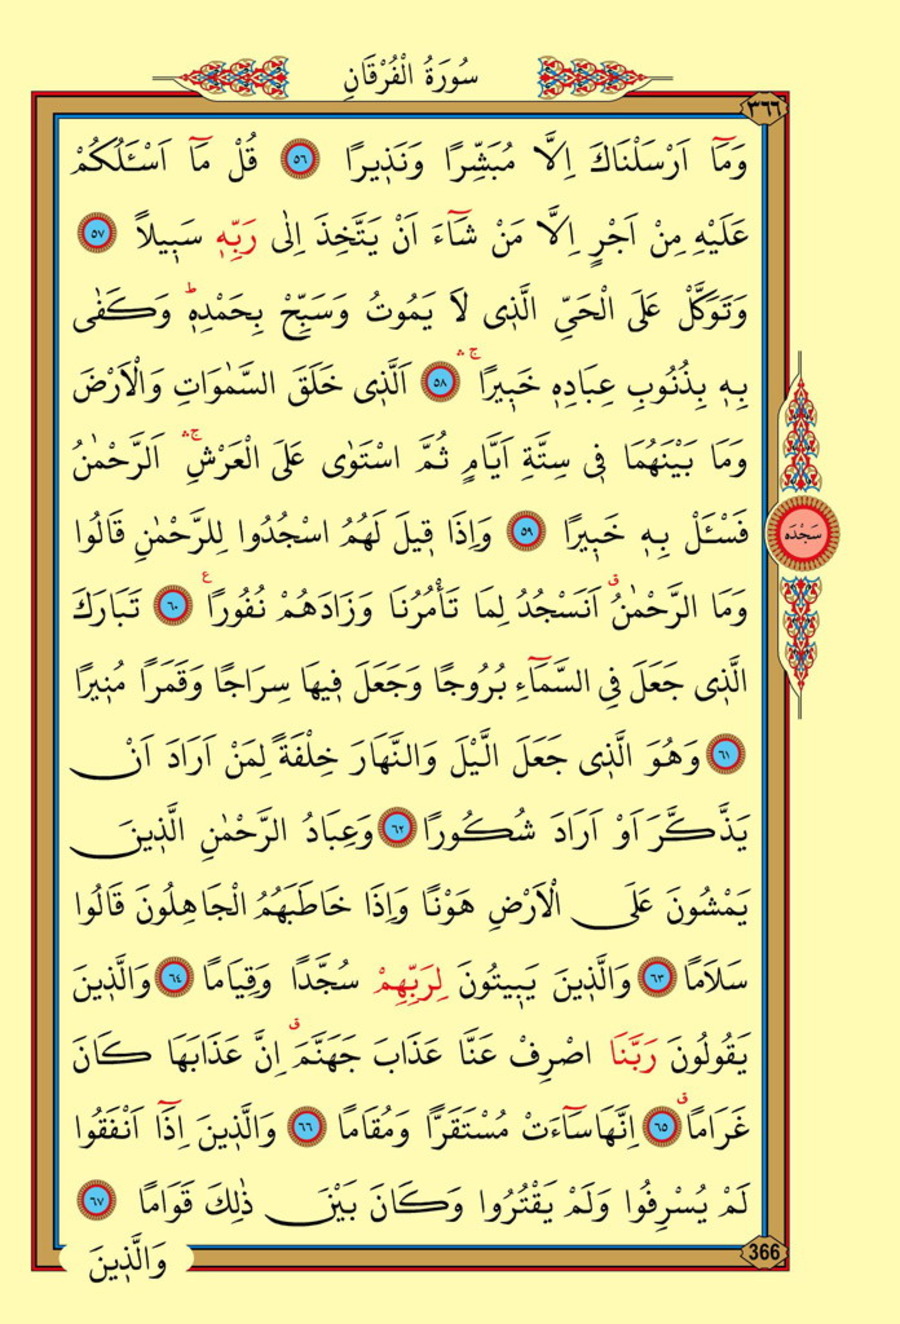 سُورَةُ الْفُرْقَانِ
٣٦٦
وَمَٓا اَرْسَلْنَاكَ اِلَّا مُبَشِّرًا وَنَذ۪يرًا ٥٦ قُلْ مَٓا اَسْـَٔلُكُمْ
عَلَيْهِ مِنْ اَجْرٍ اِلَّا مَنْ شَٓاءَ اَنْ يَتَّخِذَ اِلٰى رَبِّه۪ سَب۪يلاً ٥٧
وَتَوَكَّلْ عَلَى الْحَيِّ الَّذ۪ى لَا يَمُوتُ وَسَبِّحْ بِحَمْدِه۪ۜ وَكَفٰى
بِه۪ بِذُنُوبِ عِبَادِه۪ خَب۪يرًاۚۛ ٥٨ اَلَّذ۪ى خَلَقَ السَّمٰوَاتِ وَالْاَرْضَ
وَمَا بَيْنَهُمَا ف۪ى سِتَّةِ اَيَّامٍ ثُمَّ اسْتَوٰى عَلَى الْعَرْشِۚۛ اَلرَّحْمٰنُ
فَسْـَٔلْ بِه۪ خَب۪يرًا ٥٩ وَاِذَا ق۪يلَ لَهُمُ اسْجُدُوا لِلرَّحْمٰنِ قَالُوا
سَجْدَه
وَمَا الرَّحْمٰنُۗ اَنَسْجُدُ لِمَا تَأْمُرُنَا وَزَادَهُمْ نُفُورًاع ٦٠ تَبَارَكَ
الَّذ۪ى جَعَلَ فِى السَّمَٓاءِ بُرُوجًا وَجَعَلَ ف۪يهَا سِرَاجًا وَقَمَرًا مُن۪يرًا
٦١ وَهُوَ الَّذ۪ى جَعَلَ الَّيْلَ وَالنَّهَارَ خِلْفَةً لِمَنْ اَرَادَ اَنْ
يَذَّكَّرَ اَوْ اَرَادَ شُكُورًا ٦٢ وَعِبَادُ الرَّحْمٰنِ الَّذ۪ينَ
يَمْشُونَ عَلَى الْاَرْضِ هَوْنًا وَاِذَا خَاطَبَهُمُ الْجَاهِلُونَ قَالُوا
سَلَامًا ٦٣ وَالَّذ۪ينَ يَب۪يتُونَ لِرَبِّهِمْ سُجَّدًا وَقِيَامًا ٦٤ وَالَّذ۪ينَ
يَقُولُونَ رَبَّنَا اصْرِفْ عَنَّا عَذَابَ جَهَنَّمَۗ اِنَّ عَذَابَهَا كَانَ
غَرَامًاۗ ٦٥ اِنَّهَا سَٓاءَتْ مُسْتَقَرًّا وَمُقَامًا ٦٦ وَالَّذ۪ينَ اِذَٓا اَنْفَقُوا
لَمْ يُسْرِفُوا وَلَمْ يَقْتُرُوا وَكَانَ بَيْنَ ذٰلِكَ قَوَامًا ٦٧
366
وَالَّذ۪ينَ